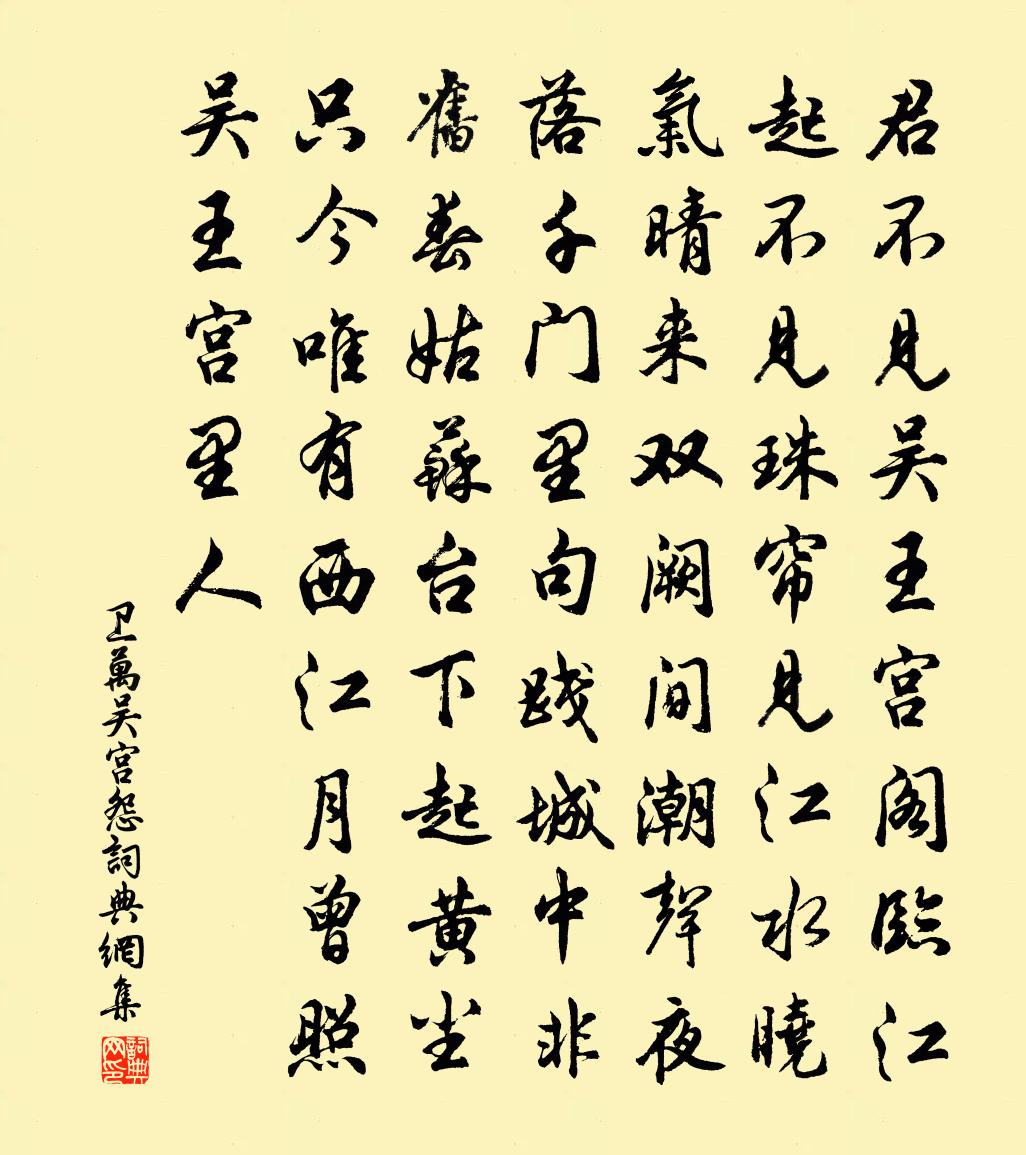 君不见吴王宫阁临江
起不见珠帘见江水晓
氣晴来双阙间潮聲夜
落千门里句践城中非
舊春姑蘇台下起黄尘
只今唯有西江月曾照
吴王宫里人
卫萬吴宫怨詞典網集
詞典网印